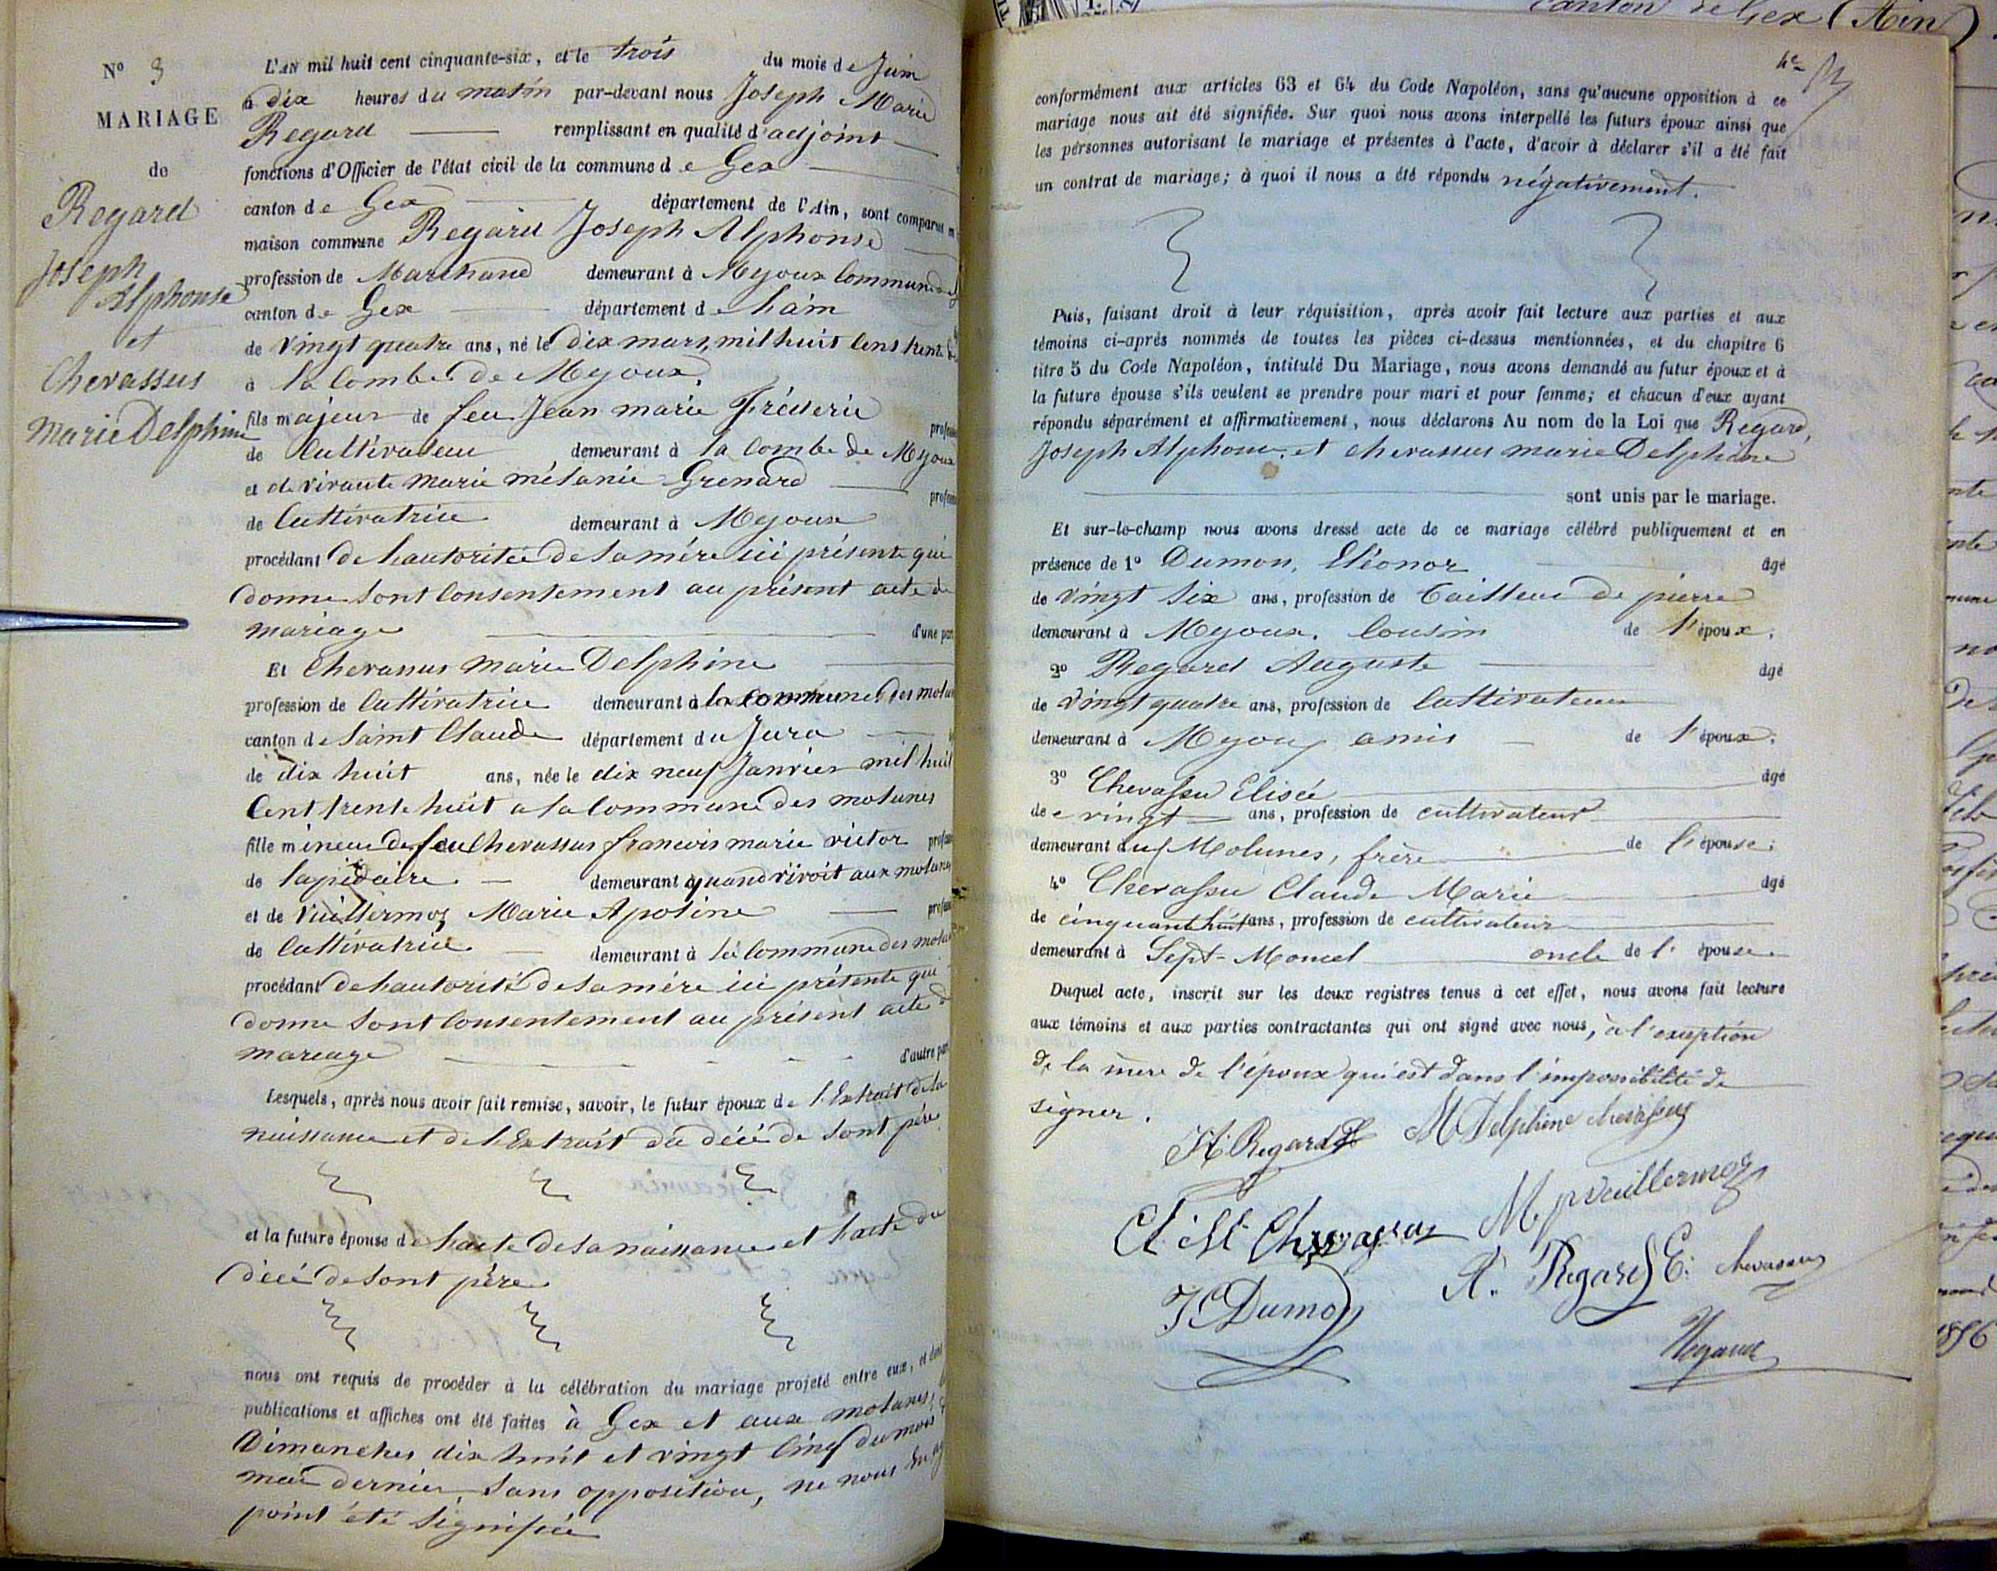 N° 3
MARIAGE
de
Regard
Joseph
Alphonse
et
Chevassus
Marie Delphine
L'AN mil huit cent cinquante-six, et le trois du mois de Juin
à dix heures du matin par-devant nous Joseph Marie
Regard remplissant en qualité d'adjoint
fonctions d'Officier de l'état civil de la commune de Gex
canton de Gex département de l'Ain, sont comparus en
maison commune Regard Joseph Alphonse
profession de Marchand demeurant à Mijoux Commune de
canton de Gex département de l'ain
de vingt quatre ans, né le dix mars, mil huit Cent trente
à la Combe de Mijoux,
fils majeur de feu Jean marie Fréderic
de Cultivateur demeurant à la Combe de Mijoux
et de vivante Marie mélanie Grenard
de Cultivatrice demeurant à Mijoux
procédant de l'autoritée de sa mére ici présente qui
donne sont Consentement au présent acte de
mariage d'une part
Et Chevassus Marie Delphine
profession de Cultivatrice demeurant à la commune des molunes
canton de Saint Claude département du Jura
de dix huit ans, née le dix neuf Janvier mil huit
Cent trente huit a la Commune des molunes
fille mineure de feu Chevassus francois marie victor
de lapidaire demeurant à quand vivoit aux molunes
et de Vuillermoz Marie Apoline
de Cultivatrice demeurant à la Commune des molunes
procédant de l'autorité de sa mére ici présente qui
donne sont Consentement au présent acte de
mariage d'autre part
Lesquels, après nous avoir fait remise, savoir, le futur époux de l'Extrait de la
naissance et de l'Extrait du décé de sont pére
et la future épouse de l'acte de sa naissance et l'acte du
décé de sont père
nous ont requis de procéder à la célébration du mariage projeté entre eux, et dont
publications et affiches ont été faites à Gex et aux molunes,
Dimanches dix huit et vingt Cinq du mois
mai dernier, Sans opposition, ne nous
point été Signifiée
conformément aux articles 63 et 64 du Code Napoléon, sans qu'aucune opposition à ce
mariage nous ait été signifiée. Sur quoi nous avons interpellé les futurs époux ainsi que
les personnes autorisant le mariage et présentes à l'acte, d'avoir à déclarer s'il a été fait
un contrat de mariage; à quoi il nous a été répondu négativement.
Puis, faisant droit à leur réquisition, après avoir fait lecture aux parties et aux
témoins ci-après nommés de toutes les pièces ci-dessus mentionnées, et du chapitre 6
titre 5 du Code Napoléon, intitulé Du Mariage, nous avons demandé au futur époux et à
la future épouse s'ils veulent se prendre pour mari et pour femme; et chacun d'eux ayant
répondu séparément et affirmativement, nous déclarons Au nom de la Loi que Regard,
Joseph Alphonse. et chevassus marie Delphine
sont unis par le mariage.
Et sur-le-champ nous avons dressé acte de ce mariage célébré publiquement et en
présence de 1° Dumon, Eléonor âgé
de vingt Six ans, profession de tailleur de pierre
demeurant à Mijoux. Cousin de l'époux.
2° Regard Auguste âgé
de vingt quatre ans, profession de Cultivateur
demeurant à Mijoux amis de l'époux.
3° Chevassu Elisée âgé
de vingt ans, profession de cultivateur
demeurant aux Molunes, frère de l'épouse.
4° Chevassu Claude Marie âgé
de cinquante huit ans, profession de cultivateur
demeurant à Sept-Moncel oncle de l'épouse
Duquel acte, inscrit sur les doux registres tenus à cet effet, nous avons fait lecture
aux témoins et aux parties contractantes qui ont signé avec nous, à l'exception
de la mère de l'époux qui est dans l'impossibilité de
signer.
JA Regard M Delphine chevassus
Cl M Chevassus M p vuillermoz
A. Regard E. chevassus
JE Dumon
Regard
Canton de Gex (Ain)
1856